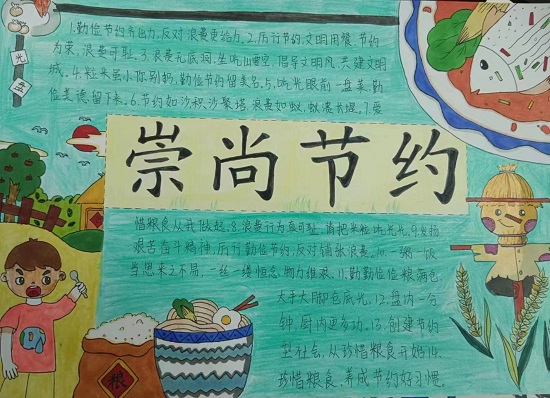 光
盘
1.勤俭节约齐出力,反对浪费更给力.2.厉行节约,文明用餐,节约
为荣,浪费可耻.3.浪费无底洞,坐吃山要空,倡导文明风,共建文明
城.4.粒米虽小你别扔,勤俭节约留美名.5.吃光眼前一盘菜,勤
俭美德留下来.6.节约如沙积,沙聚塔,浪费如蚁,蚁溃长堤.7.爱
崇尚节约
惜粮食从我做起.8.浪费行为真可耻,请把米粒吃光光.9.发扬
艰苦奋斗精神,厉行勤俭节约,反对铺张浪费.10.一粥一饭
当思来之不易,一丝一缕恒念物力维艰.11.勤勤俭俭粮满仓,
大手大脚仓底光.12.盘内一分
钟,厨内更多功.13.创建节约
型社会,从珍惜粮食开始.14.
珍惜粮食,养成节约好习惯.
粮
粮